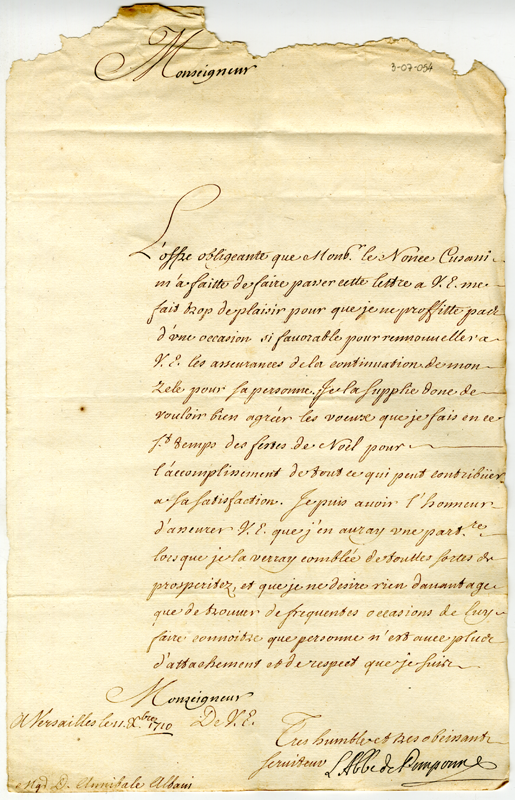 Monseigneur
3-07-054
L'offre obligeante que Monsr. le Nonce Cusani
m'a faitte de faire passer cette lettre a V.E. me
fait trop de plaisir pour que je ne proffitte pas
d'vne occasion si favorable pour rennouueller a
V.E. les asseurances de la continuation de mon
zele pour sa personne. Je la supplie donc de
vouloir bien agréer les voeux que je fais en ce
st. temps des festes de Noël pour
l'accomplissement de tout ce qui peut contribüer
a sa satisfaction. Je puis auoir l'honneur
d'asseurer V.E. que j'en auray vne part.re
lorsque je la verray comblée de touttes sortes de
prosperitez, et que je ne desire rien dauantage
que de trouuer de frequentes occasions de luy
faire connoitre que personne n'est auec plus
d'attachement et de respect que je suis
Monseigneur
A Versailles le 11. Xbre 1710
De V.E.
Tres humble et tres obeissant
seruiteur L'Abbé de Pomponne
Mgr D. Annibale Albani